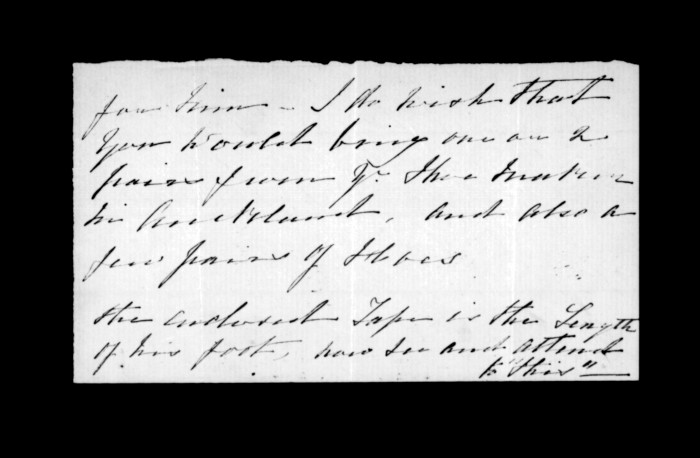 for him - I do wish that
you would bring one or 2
pairs from yr. Shoe maker
in Auckland, and also a
few pairs of Shoes
the enclosed Tape is the Length
of his foot, now see and attend
to "this"